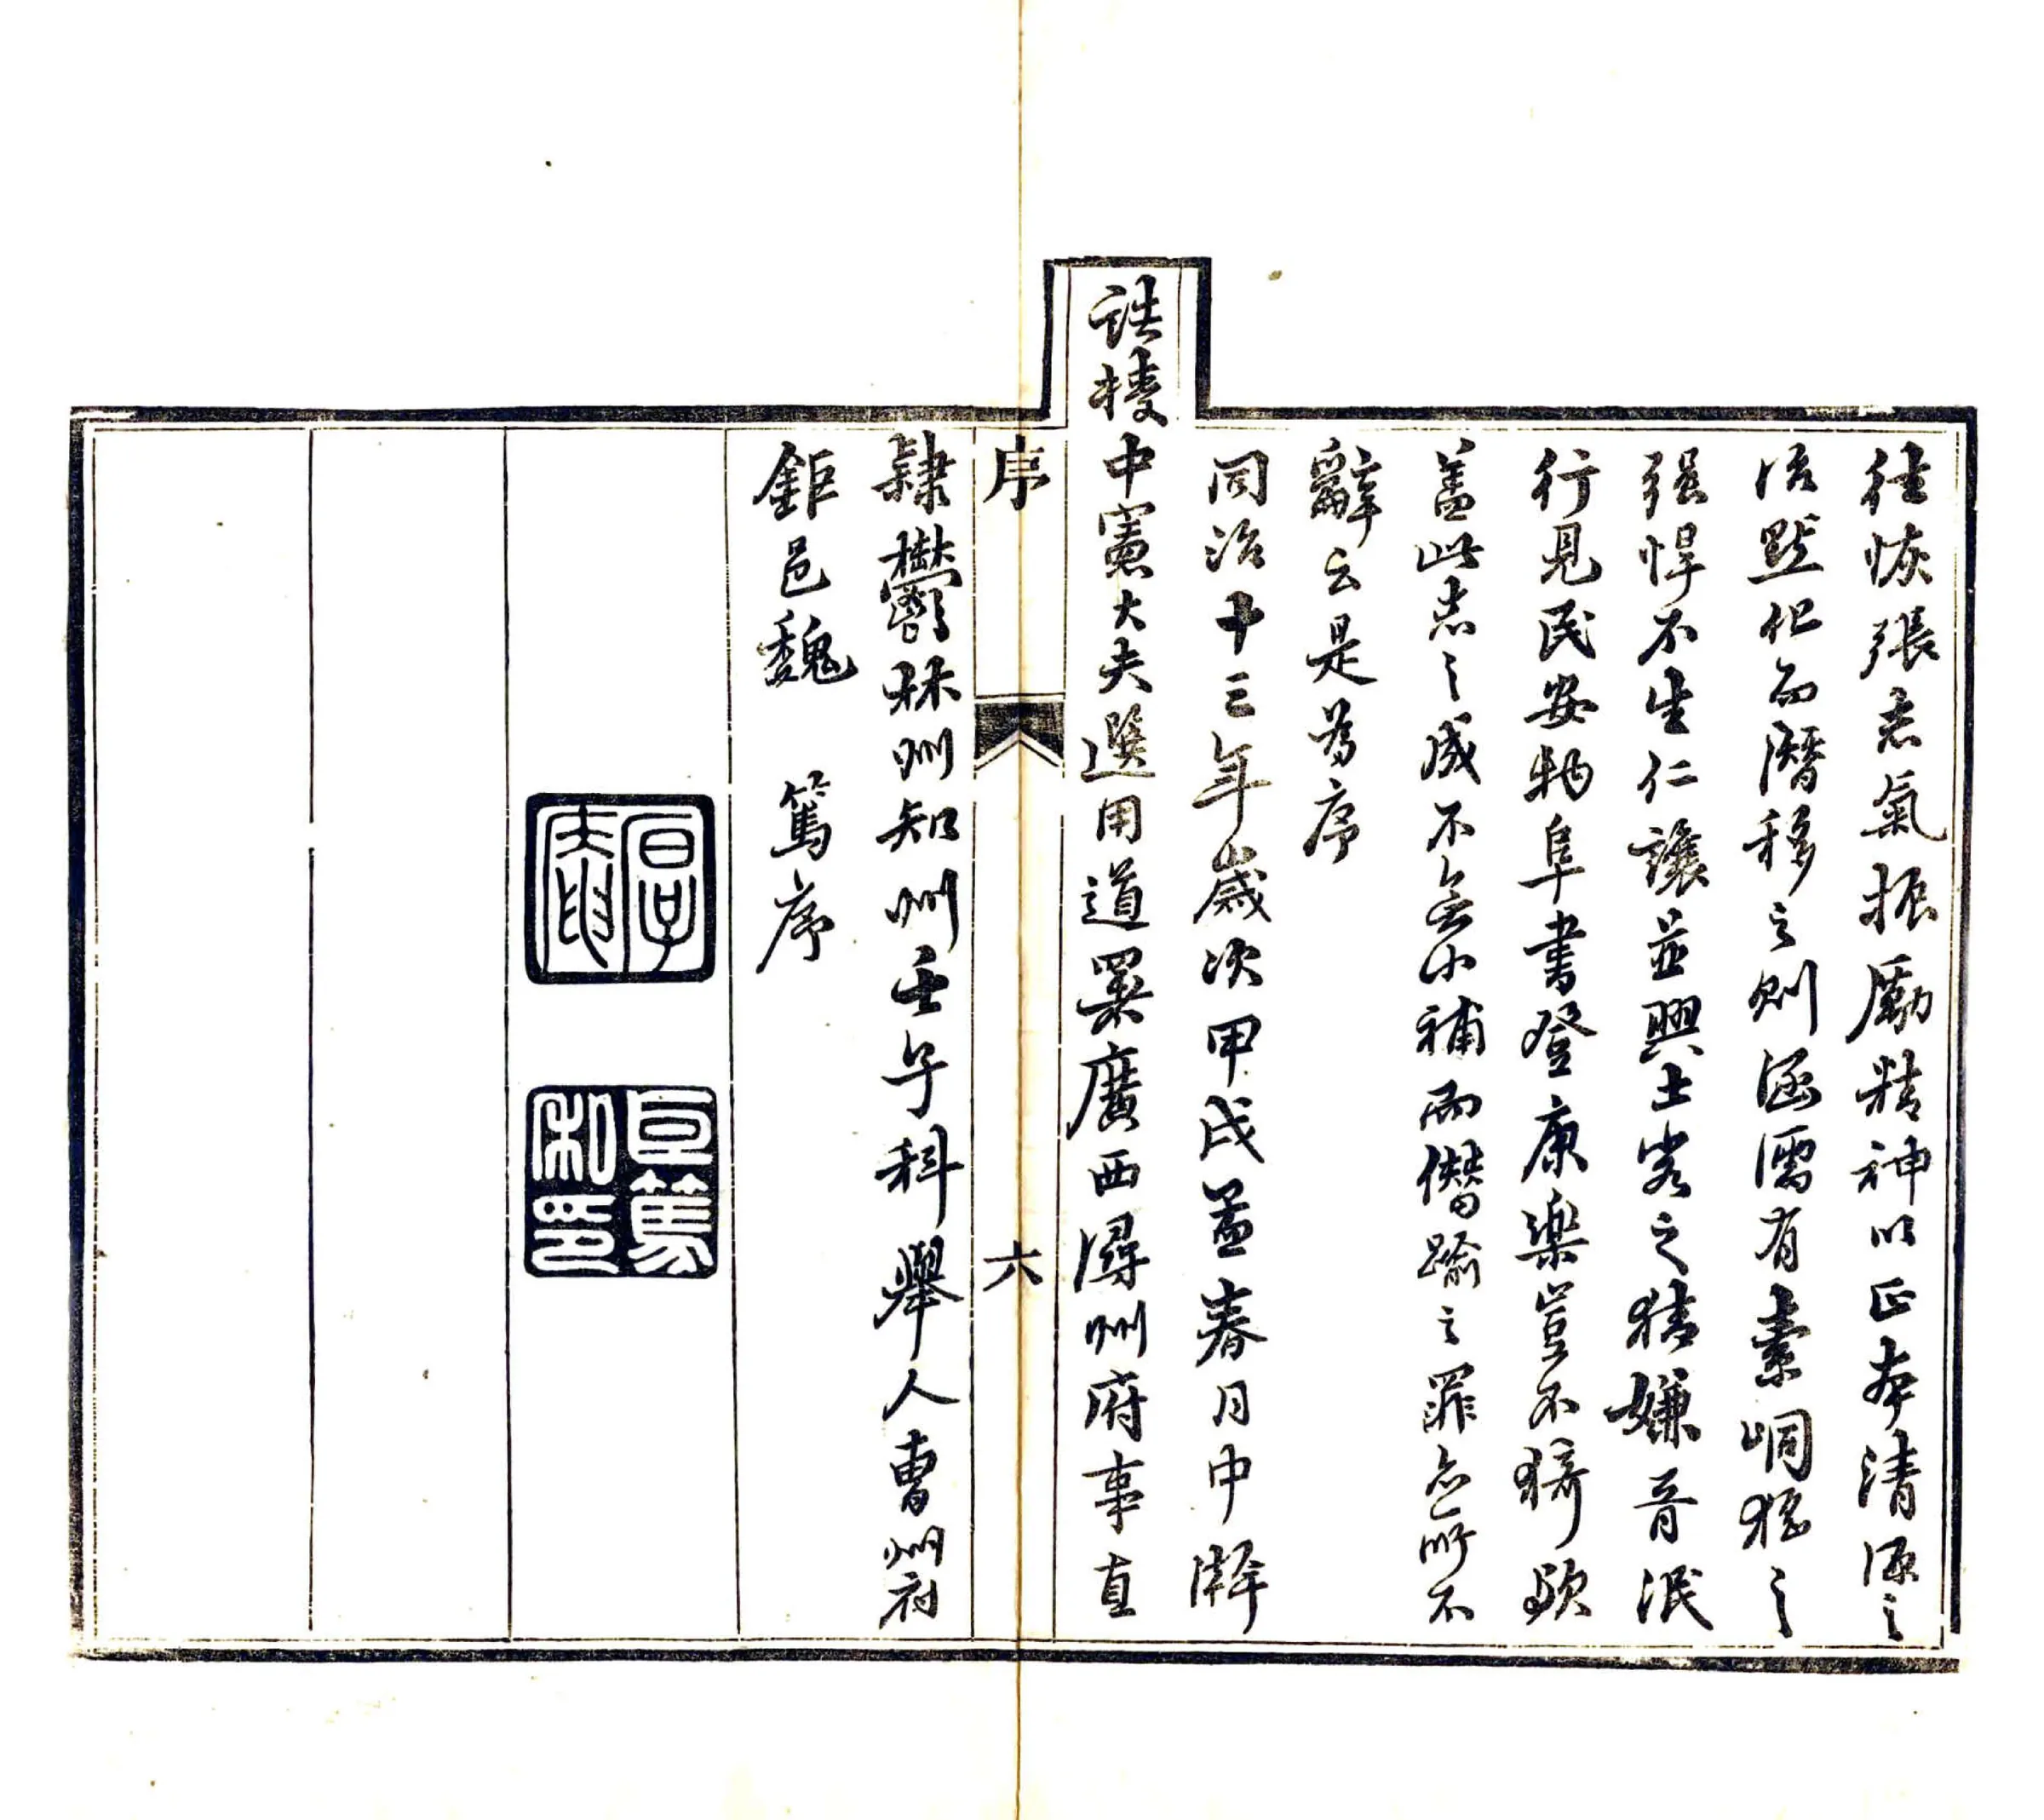 徃恢張志氣振勵精神以正本清源之
治默化而潛移之則涵濡有素峒猺之
强悍不生仁讓並興土客之猜嫌胥泯
行見民安物阜書登康樂豈不猗歟
盖此志之成不無小補而僭踰之罪亦所不
辭云是為序
同治十三年歲次甲戌孟春月中澣
誥授中憲大夫選用道署廣西潯州府事直
序 六
隸鬱林州知州壬子科舉人曹州府
鉅邑魏 篤序
臣篤私印